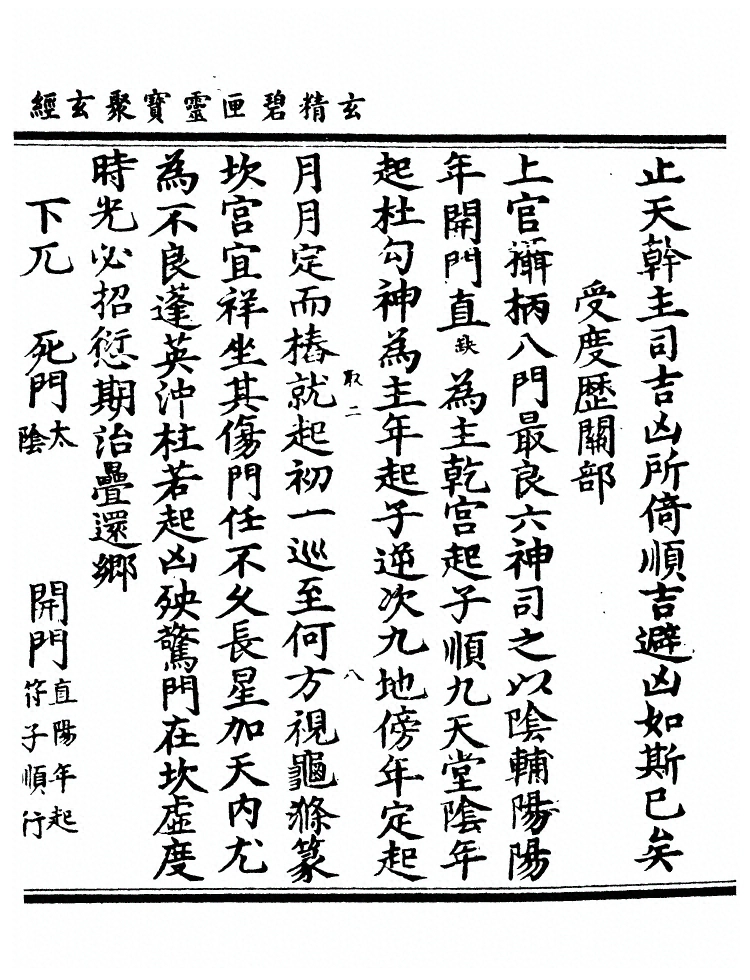 玄精碧匣靈寶聚玄經
止天幹主司吉凶所倚順吉避凶如斯已矣
受度歷關部
上官攝柄八門最良六神司之以陰輔陽陽
年開門直缺為主乾宮起子順九天堂陰年
起杜勾神為主年起子逆次九地傍年定起
取二
八
月月定而樁就起初一巡至何方視龜滌篆
坎宮宜祥坐其傷門任不久長星加天內尤
為不良蓬英沖柱若起凶殃驚門在坎虛度
時光必招愆期治疊還鄉
下兀 死門太陰 開門直符陽年起子順行